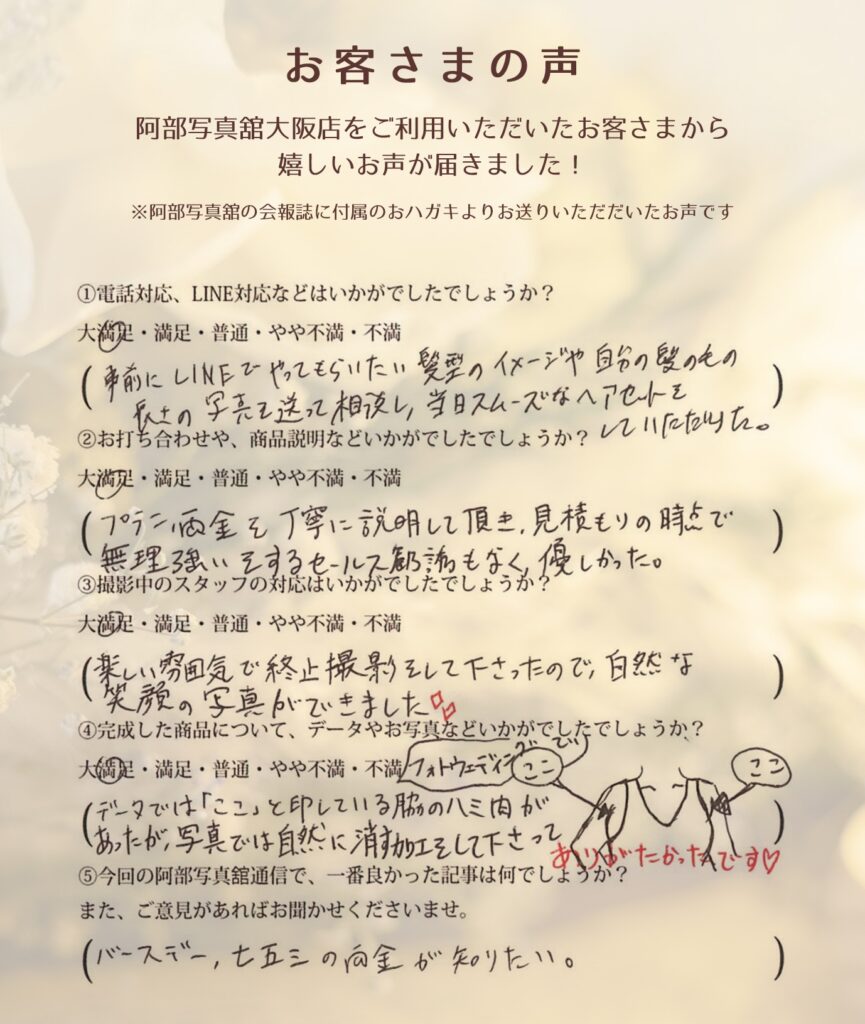 お客さまの声
阿部写真舘大阪店をご利用いただいたお客さまから
嬉しいお声が届きました！
※阿部写真舘の会報誌に付属のおハガキよりお送りいただだいたお声です
①電話対応、LINE対応などはいかがでしたでしょうか？
大満足・満足・普通・やや不満・不満
(事前にLINEでやってもらいたい髪型のイメージや自分の髪のもの
長さの写真を送って相談し、当日スムーズなヘアセットを
していただけた。)
②お打ち合わせや、商品説明などいかがでしたでしょうか？
大満足・満足・普通・やや不満・不満
(プラン 金を丁寧に説明して頂き、見積もりの時点で
無理強いをするセールス勧誘もなく、優しかった。)
③撮影中のスタッフの対応はいかがでしたでしょうか？
大満足・満足・普通・やや不満・不満
(楽しい雰囲気で終止撮影をして下さったので、自然な
笑顔の写真ができました)
④完成した商品について、データやお写真などいかがでしたでしょうか？
大満足・満足・普通・やや不満・不満
フォトウェディングで
ここ
ここ
(データでは「ここ」と印している脇のハミ肉が
あったが、写真では自然に消す加工をして下さって
ありがたかったです♡)
⑤今回の阿部写真舘通信で、一番良かった記事は何でしょうか？
また、ご意見があればお聞かせくださいませ。
(バースデー、七五三の 金が知りたい。)